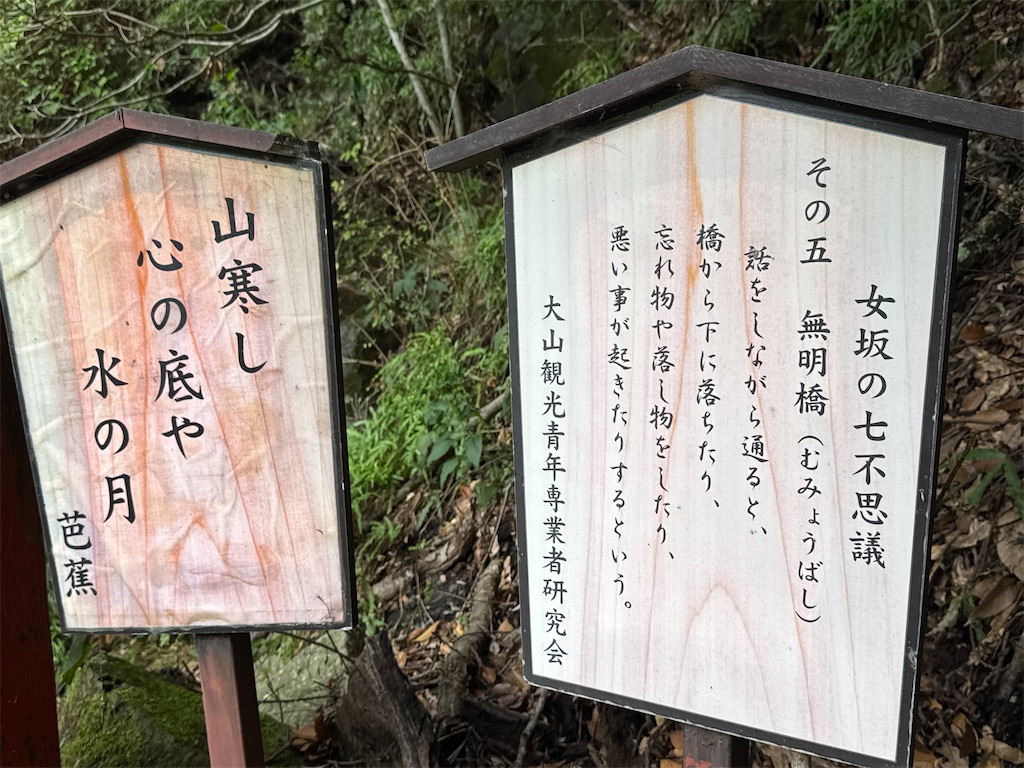 女坂の七不思議
その五 無明橋(むみょうばし)
話をしながら通ると、
橋から下に落ちたり、
忘れ物や落し物をしたり、
悪い事が起きたりするという。
大山観光青年専業者研究会
山寒し
心の底や
水の月
芭蕉